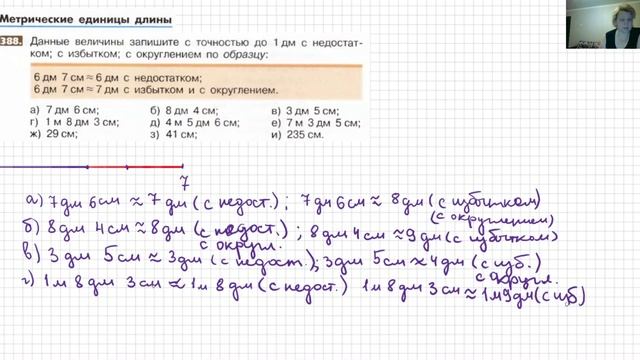 Метрические единицы длины
388. Данные величины запишите с точностью до 1 дм с недостат-
ком; с избытком; с округлением по образцу:
6 дм 7 см ≈ 6 дм с недостатком;
6 дм 7 см ≈ 7 дм с избытком и с округлением.
а) 7 дм 6 см; б) 8 дм 4 см; в) 3 дм 5 см;
г) 1 м 8 дм 3 см; д) 4 м 5 дм 6 см; е) 7 м 3 дм 5 см;
ж) 29 см; з) 41 см; и) 235 см.
7
а) 7 дм 6 см ≈ 7 дм (с недост.); 7 дм 6 см ≈ 8 дм (с избытком)
(с округлением)
б) 8 дм 4 см ≈ 8 дм (с недост.); 8 дм 4 см ≈ 9 дм (с избытком)
с округл.
в) 3 дм 5 см ≈ 3 дм (с недост.); 3 дм 5 см ≈ 4 дм (с изб.)
с округл.
г) 1 м 8 дм 3 см ≈ 1 м 8 дм (с недост.) 1 м 8 дм 3 см ≈ 1 м 9 дм (с изб)